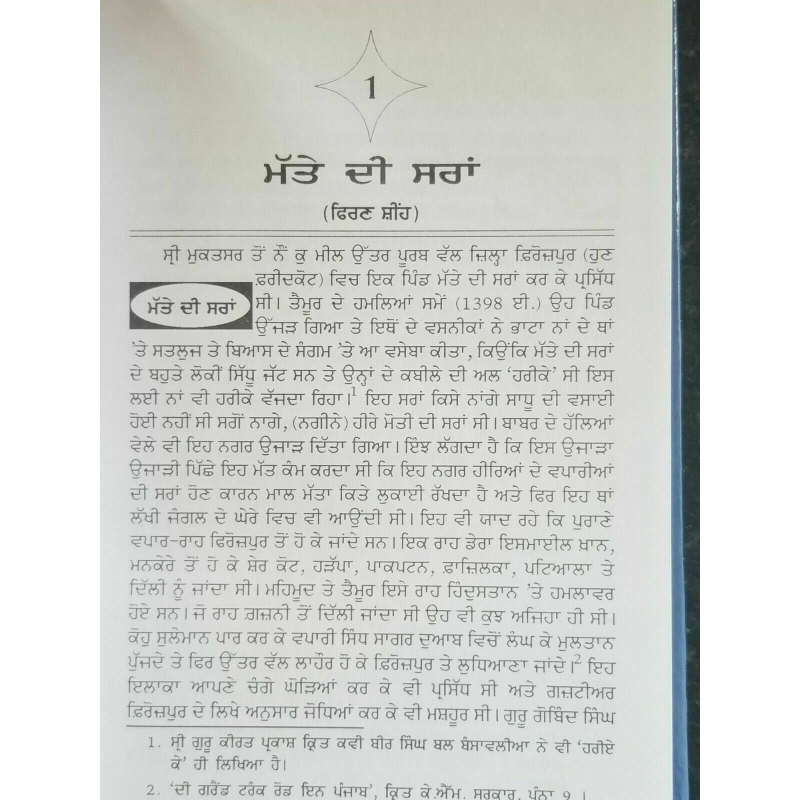 1
ਮੱਤੇ ਦੀ ਸਰਾਂ
(ਫਿਰਣ ਸ਼ੀਂਹ)
ਸ੍ਰੀ ਮੁਕਤਸਰ ਤੋਂ ਨੌਂ ਕੁ ਮੀਲ ਉੱਤਰ ਪੂਰਬ ਵੱਲ ਜ਼ਿਲ੍ਹਾ ਫ਼ਿਰੋਜ਼ਪੁਰ (ਹੁਣ
ਫ਼ਰੀਦਕੋਟ) ਵਿਚ ਇਕ ਪਿੰਡ ਮੱਤੇ ਦੀ ਸਰਾਂ ਕਰ ਕੇ ਪ੍ਰਸਿੱਧ
ਮੱਤੇ ਦੀ ਸਰਾਂ
ਸੀ। ਤੈਮੂਰ ਦੇ ਹਮਲਿਆਂ ਸਮੇਂ (1398 ਈ.) ਉਹ ਪਿੰਡ
ਉੱਜੜ ਗਿਆ ਤੇ ਇਥੋਂ ਦੇ ਵਸਨੀਕਾਂ ਨੇ ਭਾਟਾ ਨਾਂ ਦੇ ਥਾਂ
’ਤੇ ਸਤਲੁਜ ਤੇ ਬਿਆਸ ਦੇ ਸੰਗਮ ’ਤੇ ਆ ਵਸੇਬਾ ਕੀਤਾ, ਕਿਉਂਕਿ ਮੱਤੇ ਦੀ ਸਰਾਂ
ਦੇ ਬਹੁਤੇ ਲੋਕੀਂ ਸਿੱਧੂ ਜੱਟ ਸਨ ਤੇ ਉਨ੍ਹਾਂ ਦੇ ਕਬੀਲੇ ਦੀ ਅਲ ‘ਹਰੀਕੇ’ ਸੀ ਇਸ
ਲਈ ਨਾਂ ਵੀ ਹਰੀਕੇ ਵੱਜਦਾ ਰਿਹਾ।1 ਇਹ ਸਰਾਂ ਕਿਸੇ ਨਾਂਗੇ ਸਾਧੂ ਦੀ ਵਸਾਈ
ਹੋਈ ਨਹੀਂ ਸੀ ਸਗੋਂ ਨਾਗੇ, (ਨਗੀਨੇ) ਹੀਰੇ ਮੋਤੀ ਦੀ ਸਰਾਂ ਸੀ। ਬਾਬਰ ਦੇ ਹੱਲਿਆਂ
ਵੇਲੇ ਵੀ ਇਹ ਨਗਰ ਉਜਾੜ ਦਿੱਤਾ ਗਿਆ। ਇੰਝ ਲੱਗਦਾ ਹੈ ਕਿ ਇਸ ਉਜਾੜਾ
ਉਜਾੜੀ ਪਿੱਛੇ ਇਹ ਮੱਤ ਕੰਮ ਕਰਦਾ ਸੀ ਕਿ ਇਹ ਨਗਰ ਹੀਰਿਆਂ ਦੇ ਵਪਾਰੀਆਂ
ਦੀ ਸਰਾਂ ਹੋਣ ਕਾਰਨ ਮਾਲ ਮੱਤਾ ਕਿਤੇ ਲੁਕਾਈ ਰੱਖਦਾ ਹੈ ਅਤੇ ਫਿਰ ਇਹ ਥਾਂ
ਲੱਖੀ ਜੰਗਲ ਦੇ ਘੇਰੇ ਵਿਚ ਵੀ ਆਉਂਦੀ ਸੀ। ਇਹ ਵੀ ਯਾਦ ਰਹੇ ਕਿ ਪੁਰਾਣੇ
ਵਪਾਰ-ਰਾਹ ਫਿਰੋਜ਼ਪੁਰ ਤੋਂ ਹੋ ਕੇ ਜਾਂਦੇ ਸਨ। ਇਕ ਰਾਹ ਡੇਰਾ ਇਸਮਾਈਲ ਖ਼ਾਨ,
ਮਨਕੇਰੇ ਤੋਂ ਹੋ ਕੇ ਸ਼ੇਰ ਕੋਟ, ਹੜੱਪਾ, ਪਾਕਪਟਨ, ਫ਼ਾਜ਼ਿਲਕਾ, ਪਟਿਆਲਾ ਤੇ
ਦਿੱਲੀ ਨੂੰ ਜਾਂਦਾ ਸੀ। ਮਹਿਮੂਦ ਤੇ ਤੈਮੂਰ ਇਸੇ ਰਾਹ ਹਿੰਦੁਸਤਾਨ ’ਤੇ ਹਮਲਾਵਰ
ਹੋਏ ਸਨ। ਜੋ ਰਾਹ ਗ਼ਜ਼ਨੀ ਤੋਂ ਦਿੱਲੀ ਜਾਂਦਾ ਸੀ ਉਹ ਵੀ ਕੁਝ ਅਜਿਹਾ ਹੀ ਸੀ।
ਕੋਹੁ ਸੁਲੇਮਾਨ ਪਾਰ ਕਰ ਕੇ ਵਪਾਰੀ ਸਿੰਧ ਸਾਗਰ ਦੁਆਬ ਵਿਚੋਂ ਲੰਘ ਕੇ ਮੁਲਤਾਨ
ਪੁੱਜਦੇ ਤੇ ਫਿਰ ਉੱਤਰ ਵੱਲ ਲਾਹੌਰ ਹੋ ਕੇ ਫ਼ਿਰੋਜ਼ਪੁਰ ਤੇ ਲੁਧਿਆਣਾ ਜਾਂਦੇ।2 ਇਹ
ਇਲਾਕਾ ਆਪਣੇ ਚੰਗੇ ਘੋੜਿਆਂ ਕਰ ਕੇ ਵੀ ਪ੍ਰਸਿੱਧ ਸੀ ਅਤੇ ਗਜ਼ਟੀਅਰ
ਫ਼ਿਰੋਜ਼ਪੁਰ ਦੇ ਲਿਖੇ ਅਨੁਸਾਰ ਜੋਧਿਆਂ ਕਰ ਕੇ ਵੀ ਮਸ਼ਹੂਰ ਸੀ। ਗੁਰੂ ਗੋਬਿੰਦ ਸਿੰਘ
1. ਸ੍ਰੀ ਗੁਰੂ ਕੀਰਤ ਪ੍ਰਕਾਸ਼ ਕ੍ਰਿਤ ਕਵੀ ਬੀਰ ਸਿੰਘ ਬਲ ਬੰਸਾਵਲੀਆ ਨੇ ਵੀ ‘ਹਰੀਏ
ਕੇ’ ਹੀ ਲਿਖਿਆ ਹੈ।
2. ‘ਦੀ ਗਰੈਂਡ ਟਰੰਕ ਰੋਡ ਇਨ ਪੰਜਾਬ’, ਕ੍ਰਿਤ ਕੇ.ਐੱਮ. ਸਰਕਾਰ, ਪੰਨਾ 9 ।